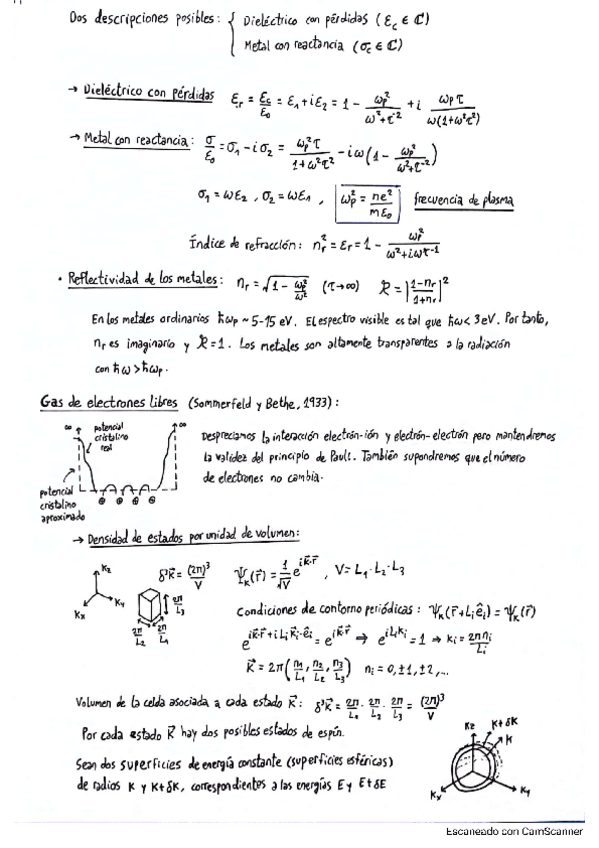 Dos descripciones posibles: { Dieléctrico con pérdidas (εc ∈ ℂ)
Metal con reactancia (σc ∈ ℂ)
→ Dieléctrico con pérdidas εr = εc/ε0 = ε1 + iε2 = 1 - ωp²/(ω²+τ⁻²) + i ωpτ/(ω(1+ω²τ²))
→ Metal con reactancia: σ/ε0 = σ1 - iσ2 = ωp²τ/(1+ω²τ²) - iω(1 - ωp²/(ω²+τ⁻²))
σ1 = ωε2, σ2 = ωε1, ωp² = ne²/mε0 frecuencia de plasma
Índice de refracción: nr² = εr = 1 - ωp²/(ω²+iωτ⁻¹)
• Reflectividad de los metales: nr = √(1 - ωp²/ω²) (τ→∞) R = |(1-nr)/(1+nr)|²
En los metales ordinarios ħωp ~ 5-15 eV. El espectro visible es tal que ħω < 3 eV. Por tanto,
nr es imaginario y R = 1. Los metales son altamente transparentes a la radiación
con ħω > ħωp.
Gas de electrones libres (Sommerfeld y Bethe, 1933):
∞ potencial cristalino real ∞
potencial cristalino aproximado
⊕ ⊕ ⊕ ⊕
Despreciamos la interacción electrón-ión y electrón-electrón pero mantendremos
la validez del principio de Pauli. También supondremos que el número
de electrones no cambia.
→ Densidad de estados por unidad de volumen:
Kz Ky Kx
2π/L3 2π/L2 2π/L1
δ³K⃗ = (2π)³/V ψK(r⃗) = 1/√V e^(iK⃗·r⃗), V = L1·L2·L3
Condiciones de contorno periódicas: ψK(r⃗+Liêi) = ψK(r⃗)
e^(iK⃗·r⃗+iLiK⃗i·êi) = e^(iK⃗·r⃗) ⇒ e^(iLiKi) = 1 ⇒ Ki = 2πni/Li
K⃗ = 2π(n1/L1, n2/L2, n3/L3) ni = 0, ±1, ±2, ...
Volumen de la celda asociada a cada estado K⃗: δ³K⃗ = 2π/L1 · 2π/L2 · 2π/L3 = (2π)³/V
Por cada estado K⃗ hay dos posibles estados de espín.
Sean dos superficies de energía constante (superficies esféricas)
de radios K y K+δK, correspondientes a las energías E y E+δE
Kz K+δK K Ky Kx
Escaneado con CamScanner